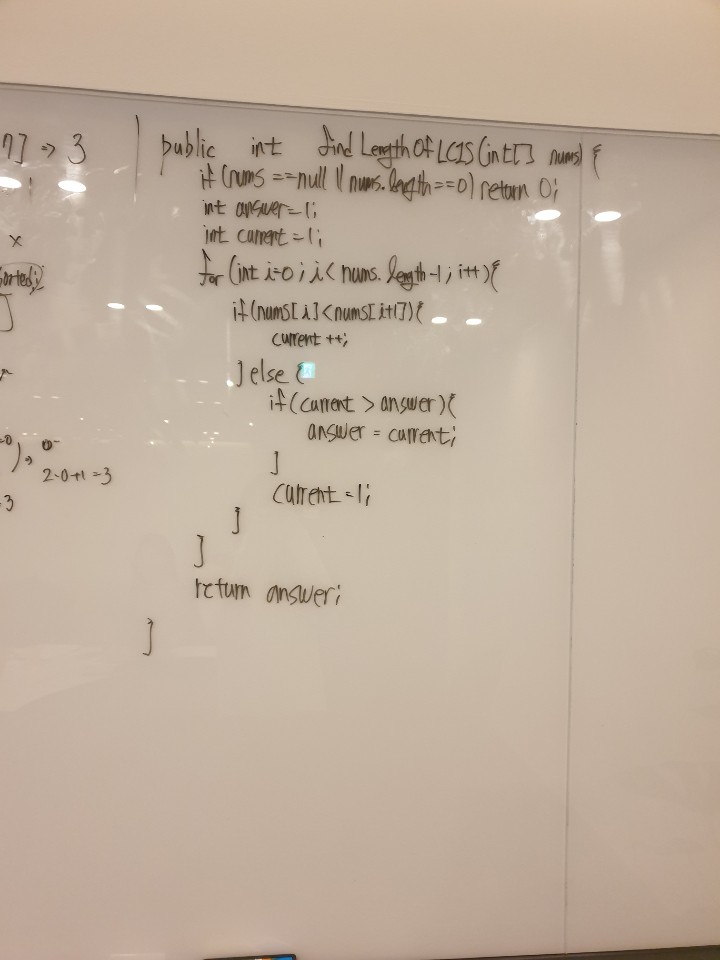 7] => 3
public int findLengthOfLCIS(int[] nums) {
if (nums ==null || nums.length==0) return 0;
int answer=1;
x
int current=1;
for (int i=0; i< nums.length-1; i++){
if(nums[i]<nums[i+1]){
current ++;
} else {
if(current > answer){
answer = current;
2-0+1=3
}
current=1;
=3
}
}
return answer;
}